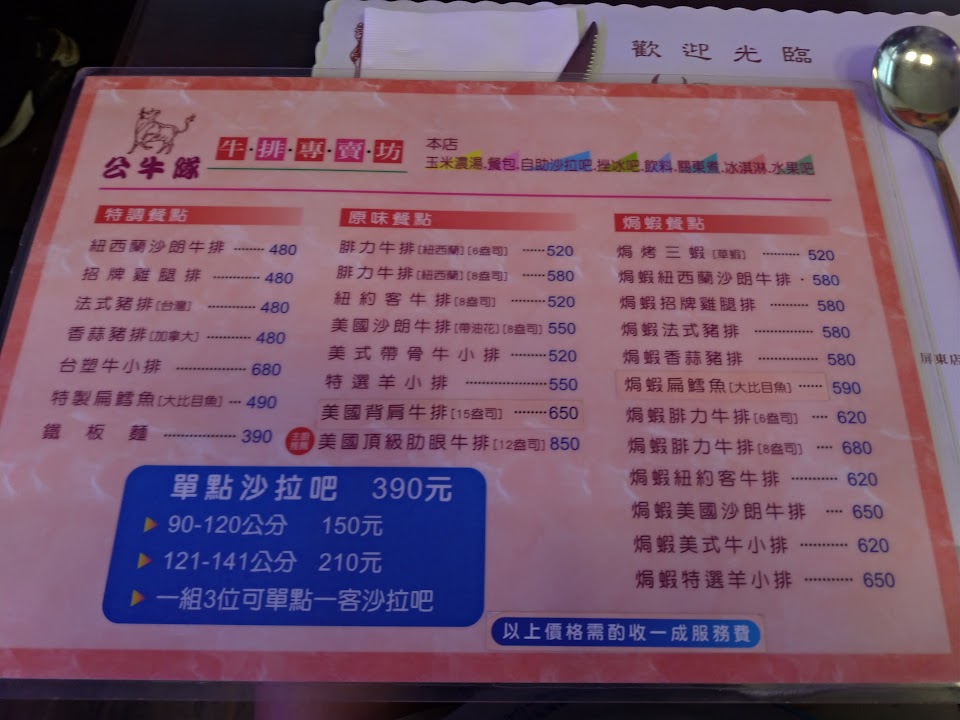 歡迎光臨
公牛隊
牛·排·專·賣·坊
本店
玉米濃湯.餐包.自助沙拉吧.挫冰吧.飲料.關東煮.冰淇淋.水果吧
特調餐點
紐西蘭沙朗牛排 ······· 480
招牌雞腿排 ··········· 480
法式豬排[台灣] ·········· 480
香蒜豬排[加拿大] ·········· 480
台塑牛小排 ·············· 680
特製扁鱈魚[大比目魚] ··· 490
鐵板麵 ················ 390
原味餐點
腓力牛排[紐西蘭][6盎司] ······520
腓力牛排[紐西蘭][8盎司] ······580
紐約客牛排[8盎司] ·········520
美國沙朗牛排[帶油花][8盎司] 550
美式帶骨牛小排 ··········520
特選羊小排 ··················550
美國背肩牛排[15盎司] ········650
美國頂級肋眼牛排[12盎司] 850
焗蝦餐點
焗烤三蝦[草蝦] ·········· 520
焗蝦紐西蘭沙朗牛排 · 580
焗蝦招牌雞腿排 ·········· 580
焗蝦法式豬排 ·············· 580
焗蝦香蒜豬排 ·············· 580
焗蝦扁鱈魚[大比目魚] ····· 590
焗蝦腓力牛排[6盎司] ···· 620
焗蝦腓力牛排[8盎司] ··· 680
焗蝦紐約客牛排 ·········· 620
焗蝦美國沙朗牛排 ···· 650
焗蝦美式牛小排 ·········· 620
焗蝦特選羊小排 ··········· 650
單點沙拉吧 390元
90-120公分 150元
121-141公分 210元
一組3位可單點一客沙拉吧
以上價格需酌收一成服務費
屏東店